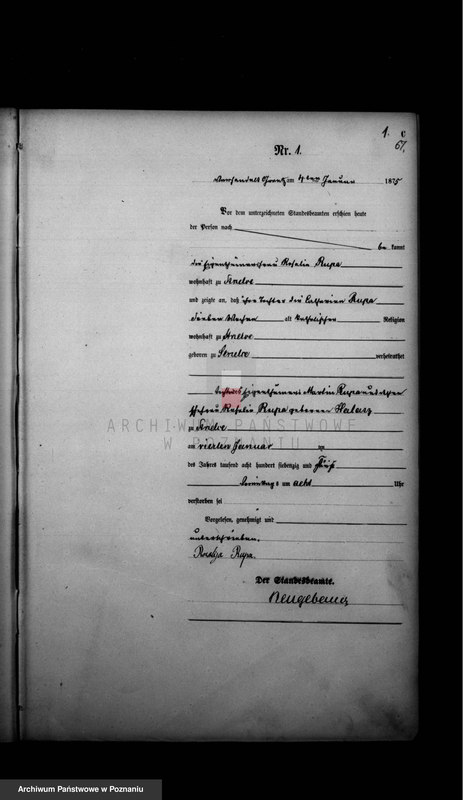 1. C
67.
Nr. 1.
am 4ten Januar 1875
Vor dem unterzeichneten Standesbeamten erschien heute
der Person nach
be kannt
die Eigenthümerfrau Rosalie Rupa
wohnhaft zu
und zeigte an, daß ihre Tochter die Catharina Rupa
sieben Wochen alt katholischer Religion
wohnhaft zu
geboren zu verheirathet
Tochter des Eigenthümers Martin Rupa und dessen
Ehefrau Rosalie Rupa geborene
ARCHIWUM PAŃSTWOWE
W POZNANIU
zu
am vierten Januar
des Jahres tausend acht hundert siebenzig und fünf
Vormittags um acht Uhr
verstorben sei
Vorgelesen, genehmigt und
unterschrieben.
Rosalja Rupa.
Der Standesbeamte.
Archiwum Państwowe w Poznaniu